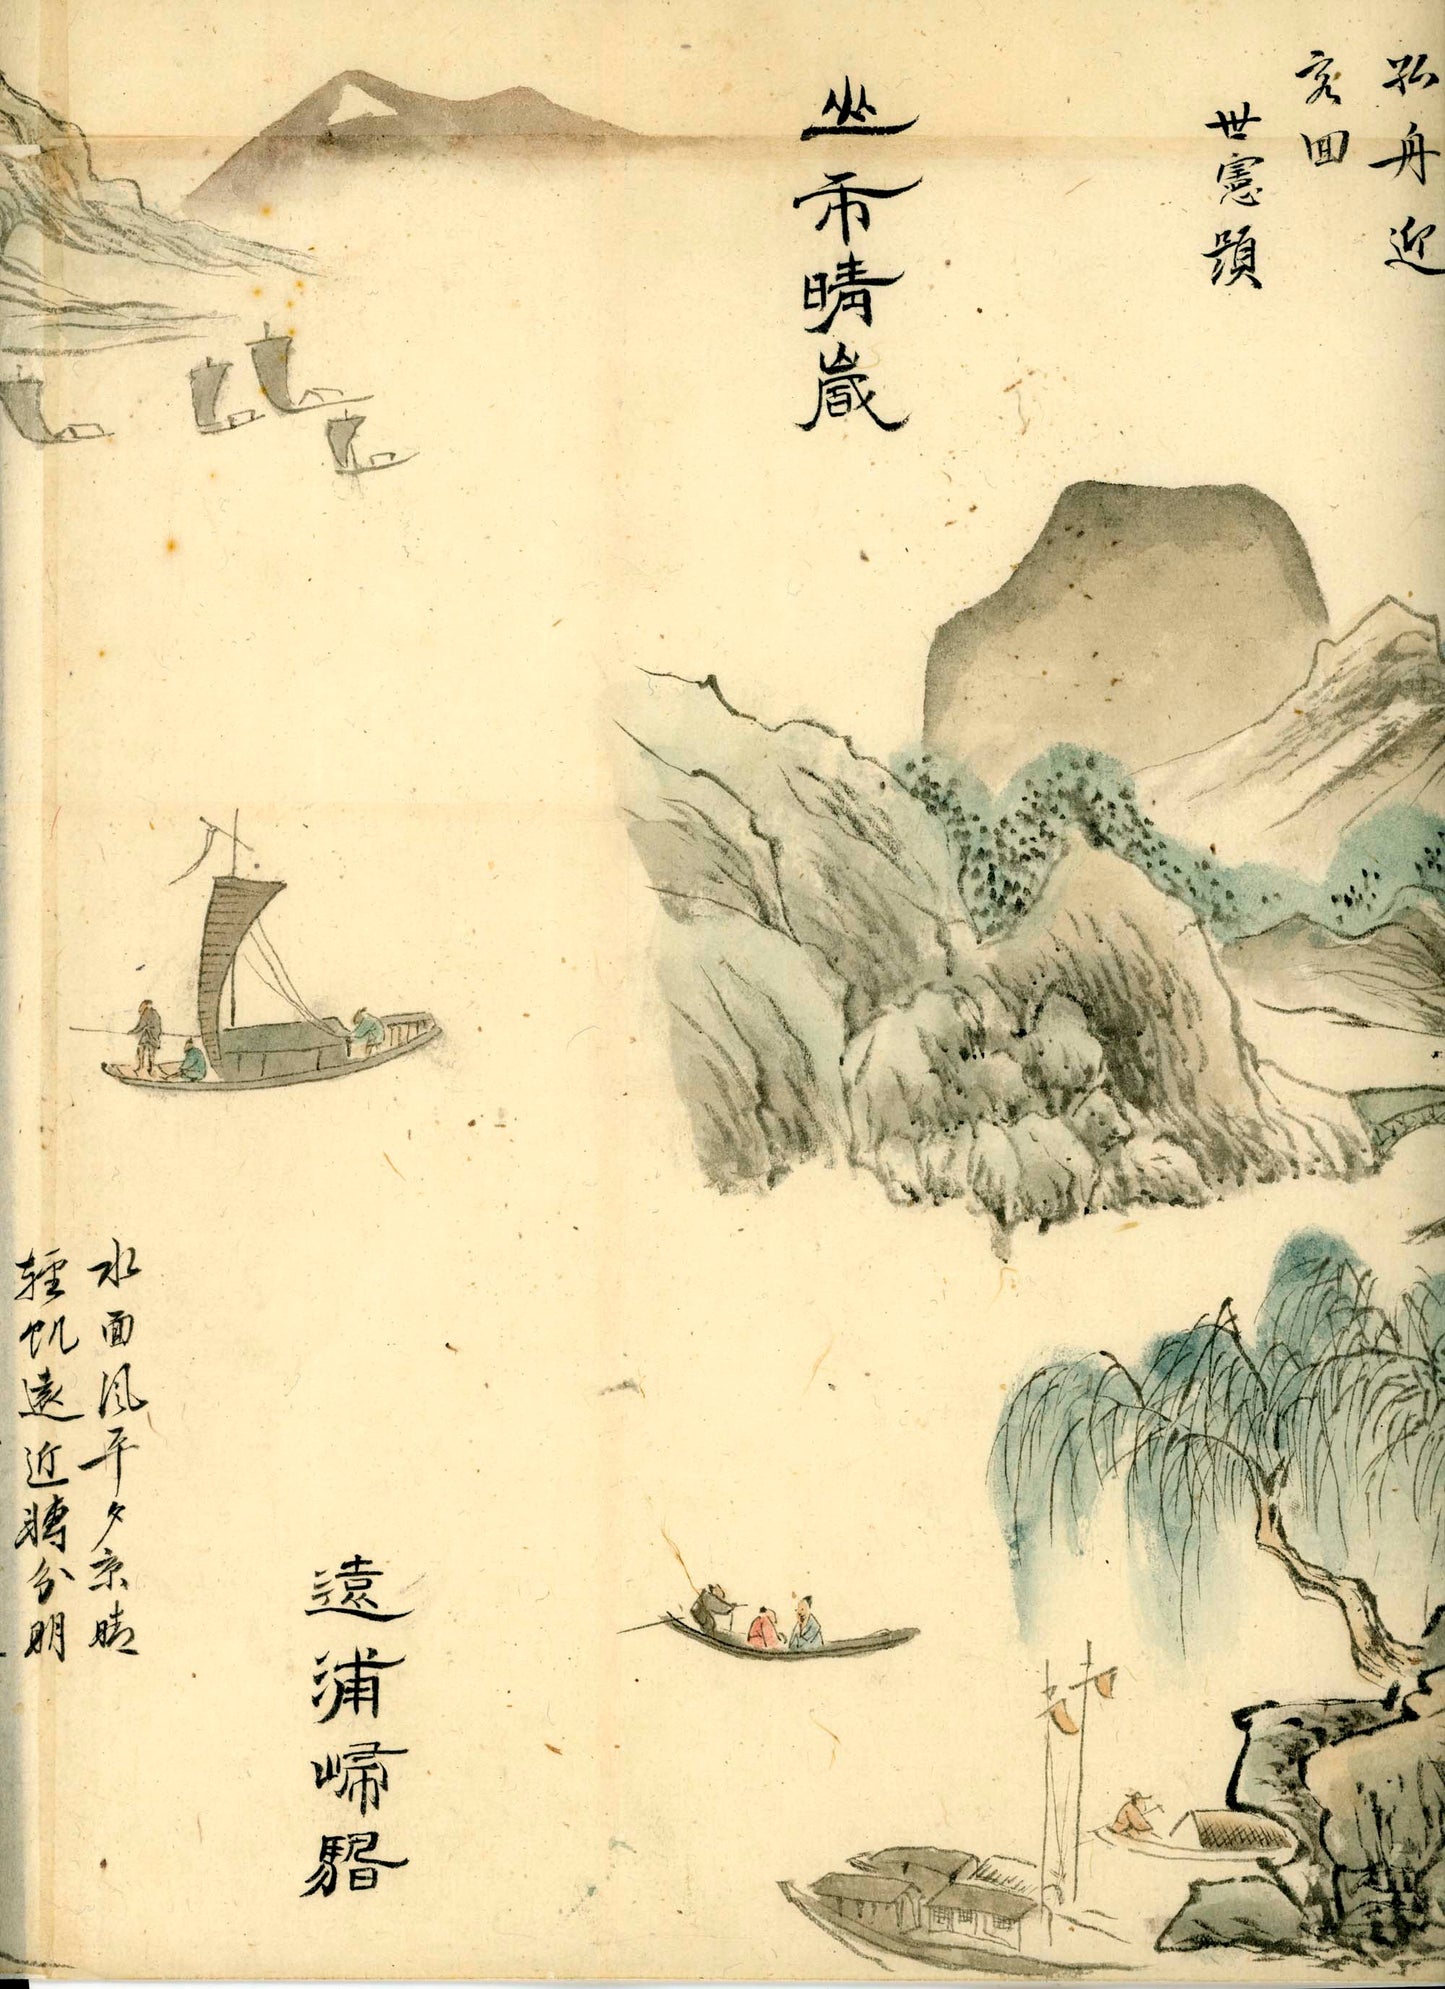 孤舟迎
客回
世憲題
山市晴嵐
遠浦歸颿
水面風平夕京晴
輕帆遠近轉分明